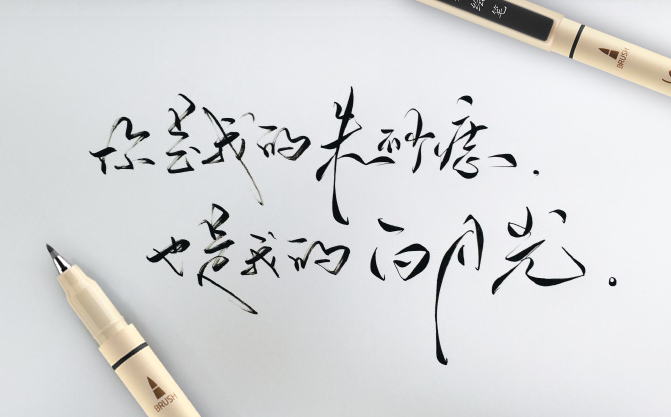 绘笔
BRUSH
你是我的朱砂痣.
也是我的白月光.
BRUSH